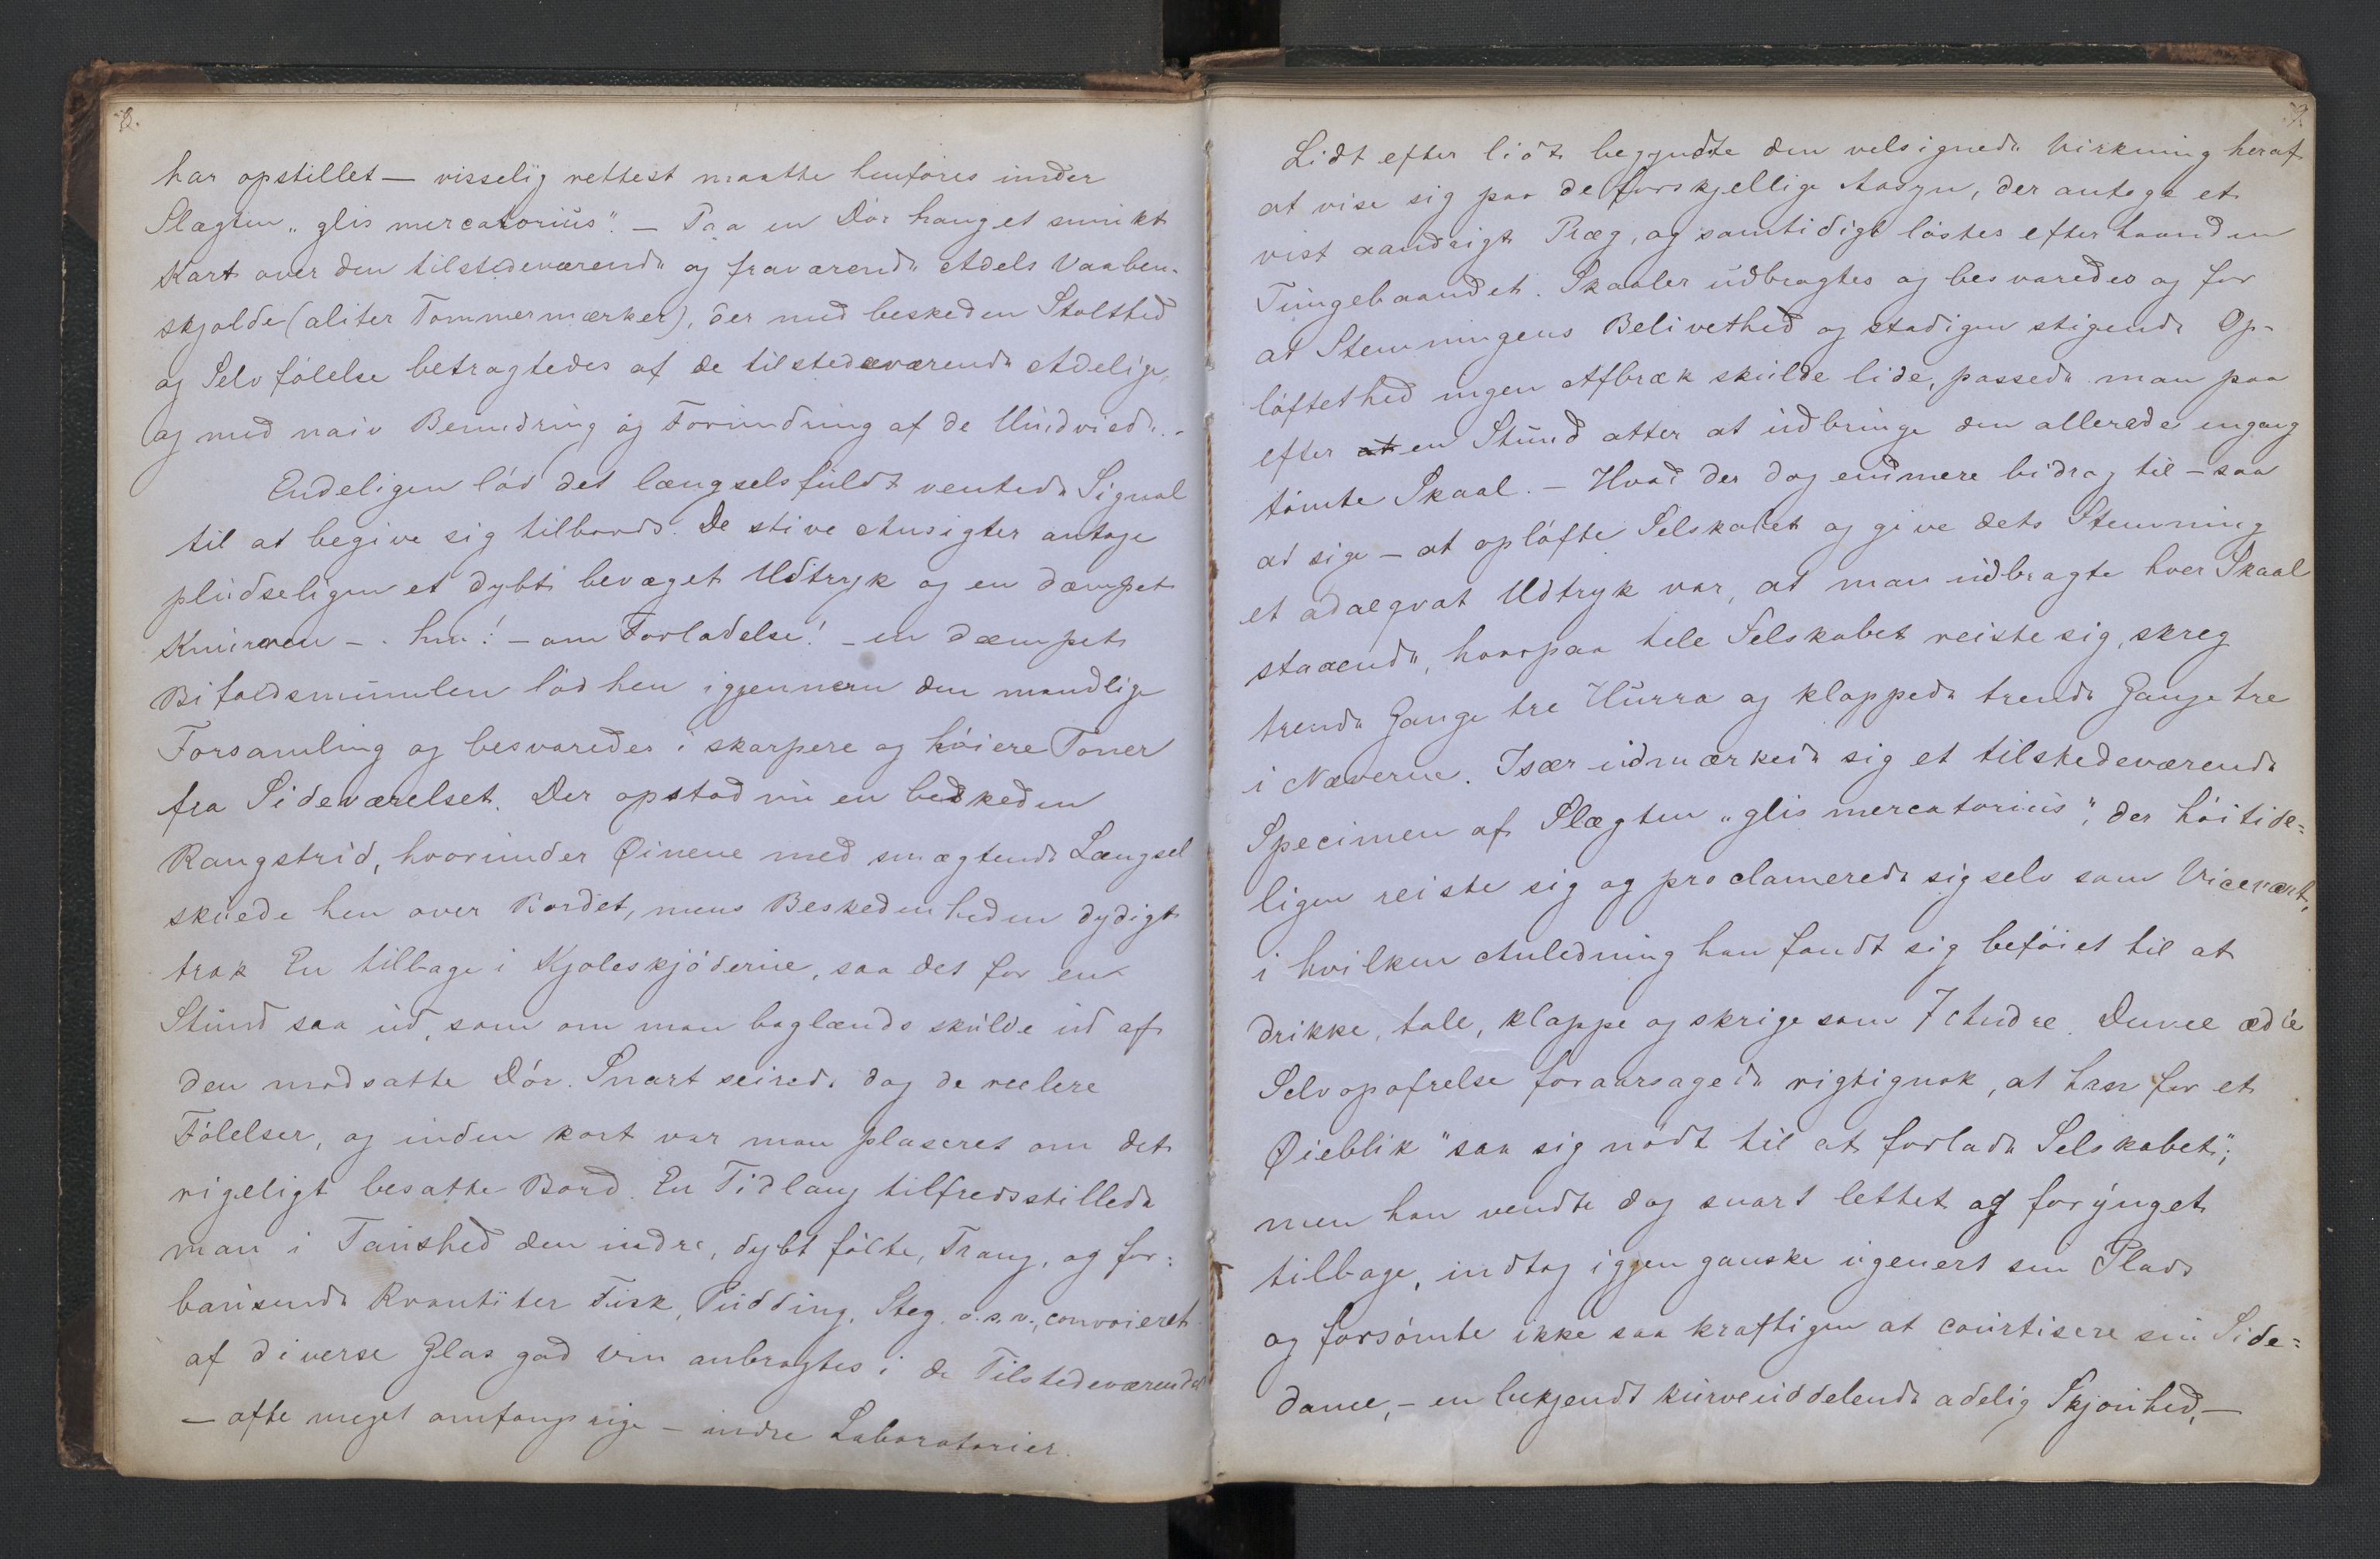 8.
har opstillet — visselig rettest maatte henføres under
Slægten „glis mercatorius". — Paa en Dör hang et smukt
Kart over den tilstedeværende og fraværende Adels Vaaben-
skjolde (aliter Tømmermærker), der med beskeden Stolthed
og Selvfölelse betragtedes af de tilstedeværende Adelige,
og med naiv Beundring og Forundring af de Uindviede. -
Endeligen löd det længselsfuldt ventede Signal
til at begive sig tilbords. De stive Ansigter antoge
pludseligen et dybt bevæget Udtryk og en dæmpet
Knurren - . hm! - om Forladelse! - en dæmpet
Bifaldsmumlen löd hen igjennem den mandlige
Forsamling og besvaredes i skarpere og höiere Toner
fra Sideværelset. Der opstod nu en beskeden
Rangstrid, hvorunder Øinene med smægtende Længsel
skuede hen over Bordet, mens Beskedenheden dydigt
trak En tilbage i Kjoleskjöderne, saa det for en
Stund saa ud, som om man baglænds skulde ud af
den modsatte Dör. Snart seirede dog de reelere
Fölelser, og inden kort var man plaseret om det
rigeligt besatte Bord. En Tidlang tilfredsstillede
man i Taushed den indre, dybt fölte, Trang, og for:
bausende Kvantiter Fisk, Pudding, Steg o.s.v., convoieret
af diverse Glas god Vin anbragtes i de Tilstedeværendes
— ofte meget omfangsrige — indre Laboratorier.
9.
Lidt efter lidt begyndte den velsignede Virkning heraf
at vise sig paa de forskjellige Aasyn, der antoge et
vist aandrigt Præg, og samtidigt löstes efterhaanden
Tungebaandet. Skaaler udbragtes og besvaredes og for
at Stemningens Belivethed og stadigen stigende Op-
löftethed ingen Afbræk skulde lide, passede man paa
efter at en Stund atter at udbringe den allerede engang
tömte Skaal. - Hvad der dog endmere bidrog til - saa
at sige - at oplöfte Selskabet og give dets Stemning
et adæqvat Udtryk var, at man udbragte hver Skaal
staaende, hvorpaa hele Selskabet reiste sig, skreg
trende Gange tre Hurra og klappede trende Gange tre
i Næverne. Især udmærkede sig et tilstedeværende
Specimen af Slægten „glis mercatorius", der höitide=
ligen reiste sig og proclamerede sig selv som Vicevært,
i hvilken Anledning han fandt sig beföiet til at
drikke, tale, klappe og skrige som 7 Andre. Denne ædle
Selvopofrelse foraarsagede rigtignok, at han for et
Øieblik "saa sig nödt til at forlade Selskabet";
men han vendte dog snart lettet og forynget
tilbage, indtog igjen ganske ugenert sin Plads
og forsömte ikke saa kraftigen at courtisere sin Side=
dame, - en bekjendt kurveuddelende adelig Skjønhed, —